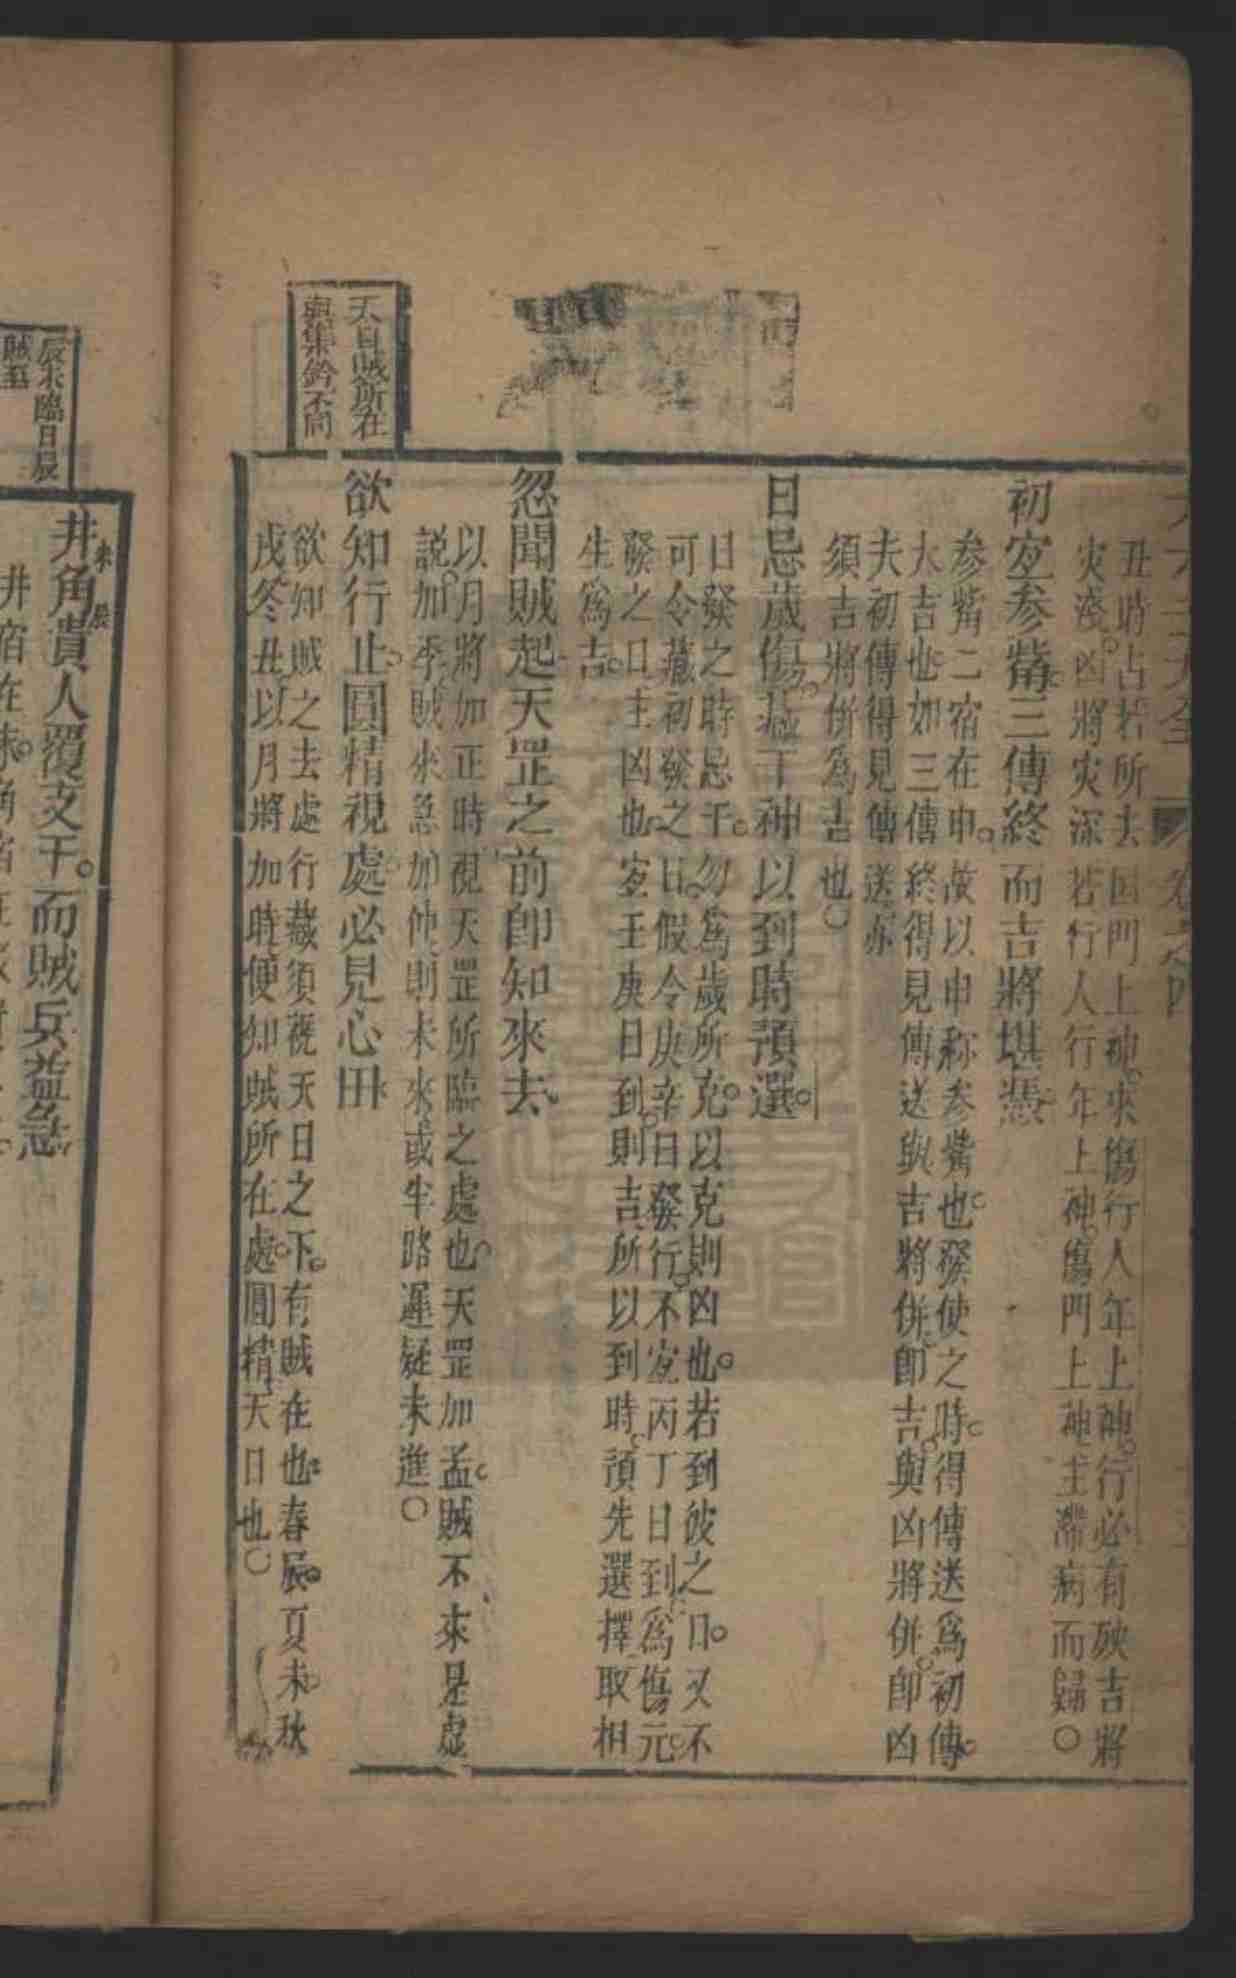 丑時占若所去國門上神來傷行人年上神行必有殃吉將
灾淺凶將灾深若行人行年上神傷門上神主滯病而歸○
初宜參觜三傳終而吉將堪憑
參觜二宿在申故以申称參觜也發使之時得傳送為初傳
大吉也如三傳終得見傳送與吉將併卽吉與凶將併卽凶
夫初傳得見傳送亦
須吉將併為吉也○
日忌歲傷干神以到時預選
日發之時忌干勿為歲所克以克則凶也若到彼之日又不
可令藏初發之日假令庚辛日發行不宜丙丁日到為傷元
發之日主凶也宜壬庚日到則吉所以到時預先選擇取相
生為吉
忽聞賊起天罡之前卽知來去
以月將加正時視天罡所臨之處也天罡加孟賊不來是虛
説加季賊來急加仲則未來或半路遲疑未進○
欲知行止圓精視處必見心田
欲知賊之去處行藏須視天日之下有賊在也春辰夏未秋
戌冬丑以月將加時便知賊所在處圓精天日也○
天目賊所在
與集鈐不同
辰未臨日辰
賊至
井未角辰貴人覆支干而賊兵益急
井宿在未角宿在辰